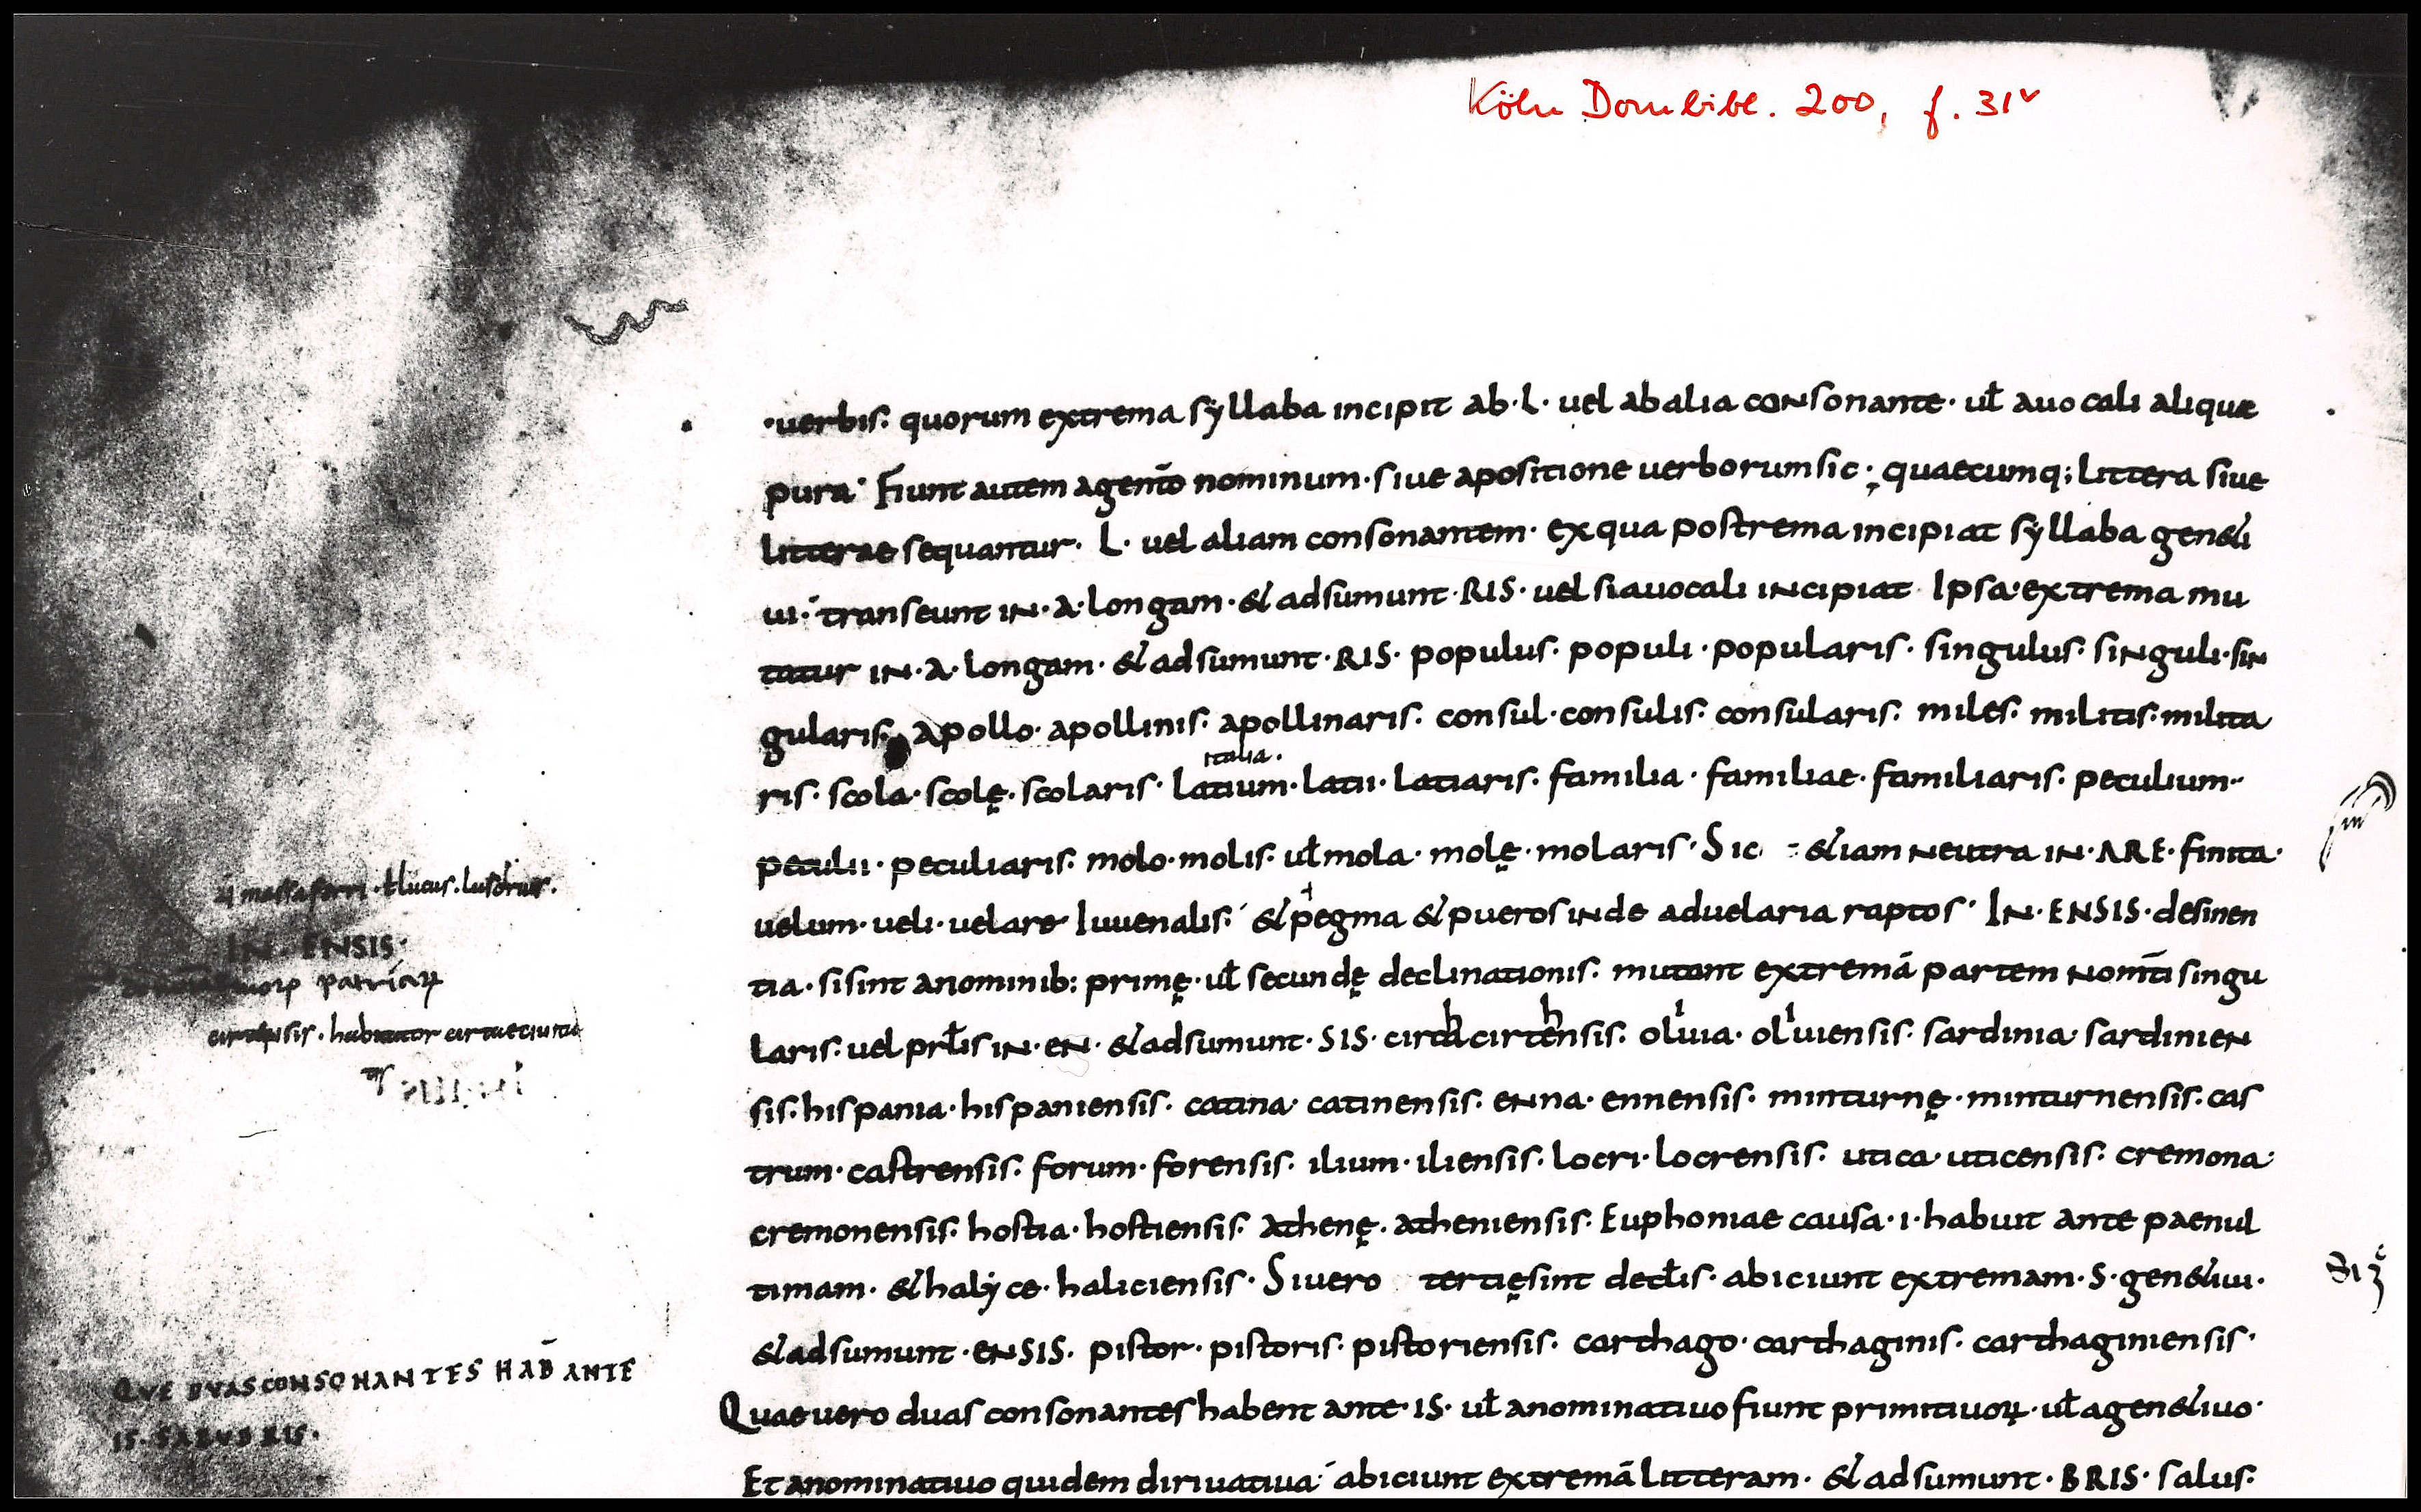 Köln Dombibl. 200, f. 31v
·uerbis· quorum extrema syllaba incipit ab·l· uel abalia consonante· ul̄ auocali aliquæ
pura· Fiunt autem agenīto nominum· siue apositione uerborum sic· quaecumq; littera siue
litterae sequantur· L· uel aliam consonantem· exqua postrema incipiat syllaba gen&i
ui· transeunt in·a·longam·&adsumunt·RIS·uel siauocali incipiat Ipsa·extrema mu
tatur in·a·longam·&adsumunt·RIS·populus·populi·popularis·singulus·singuli·sin
gularis· apollo·apollinis·apollinaris·consul·consulis·consularis·miles·militis·milita
italia·
ris·scola·scolę·scolaris·latium·latii·latiaris·familia·familiae·familiaris·peculium·
peculii·peculiaris·molo·molis·ul̄ mola·molę·molaris·Sic &iam neutra in·ARE·finita·
uelum·ueli·uelare Iuuenalis· &pegma &pueros inde aduelaria raptos· In·ENSIS·desinen
tia·sisint anominib: primę·ul̄ secundę declinationis·mutant extremā partem nomīti singu
laris·uel prl̄is in·en·&adsumunt·SIS·cirta cirtensis·oliuia·oliuiensis·sardinia·sardinien
sis·hispania·hispaniensis·catina·catinensis·enna·ennensis·minturnę·minturnensis·cas
trum·castrensis·forum·forensis·ilium·iliensis·locri·locrensis·utica·uticensis·cremona·
cremonensis·hostia·hostiensis·athenę·atheniensis·Euphoniae causa·i·habuit ante paenul
timam·&halyce·haliciensis·Siuero tertię sint decl̄is·abiciunt extremam·S·gen&iui·
&adsumunt·ENSIS·pistor·pistoris·pistoriensis·carthago·carthaginis·carthaginiensis·
Quae uero duas consonantes habent ante·IS·ul̄ anominatiuo fiunt primitiuoꝝ·ul̄ agen&iuo·
Et anominatiuo quidem diriuatiua· abiciunt extremā litteram·&adsumunt·BRIS·salus·
massa ferri
IN ENSIS·
patriaꝝ
habitator
QVE DVAS CONSONANTES HAB̄ ANTE
IS·SALVBRIS·